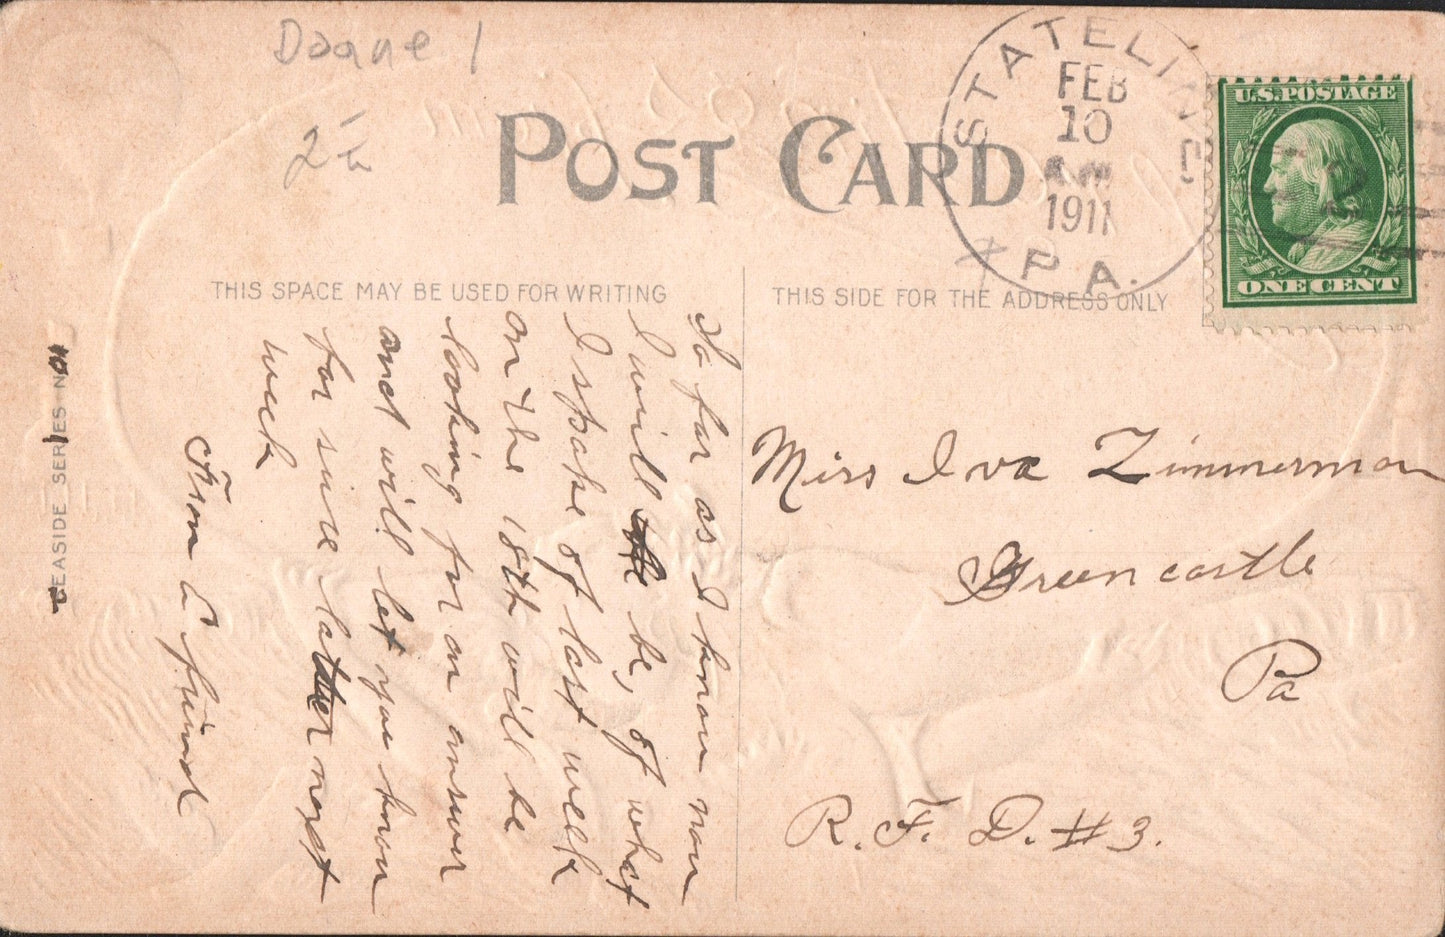 Doane 1
POST CARD
STATELINE
FEB
10
AM
1911
PA.
U.S. POSTAGE
ONE CENT
THIS SPACE MAY BE USED FOR WRITING
THIS SIDE FOR THE ADDRESS ONLY
So far as I know now
I will be, of what
I spoke of last week
on the 18th will be
looking for an answer
and will let you know
for sure latter next
week
From a friend
Miss Iva Zimmerman
Greencastle
Pa
R. F. D. #3.
SEASIDE SERIES No